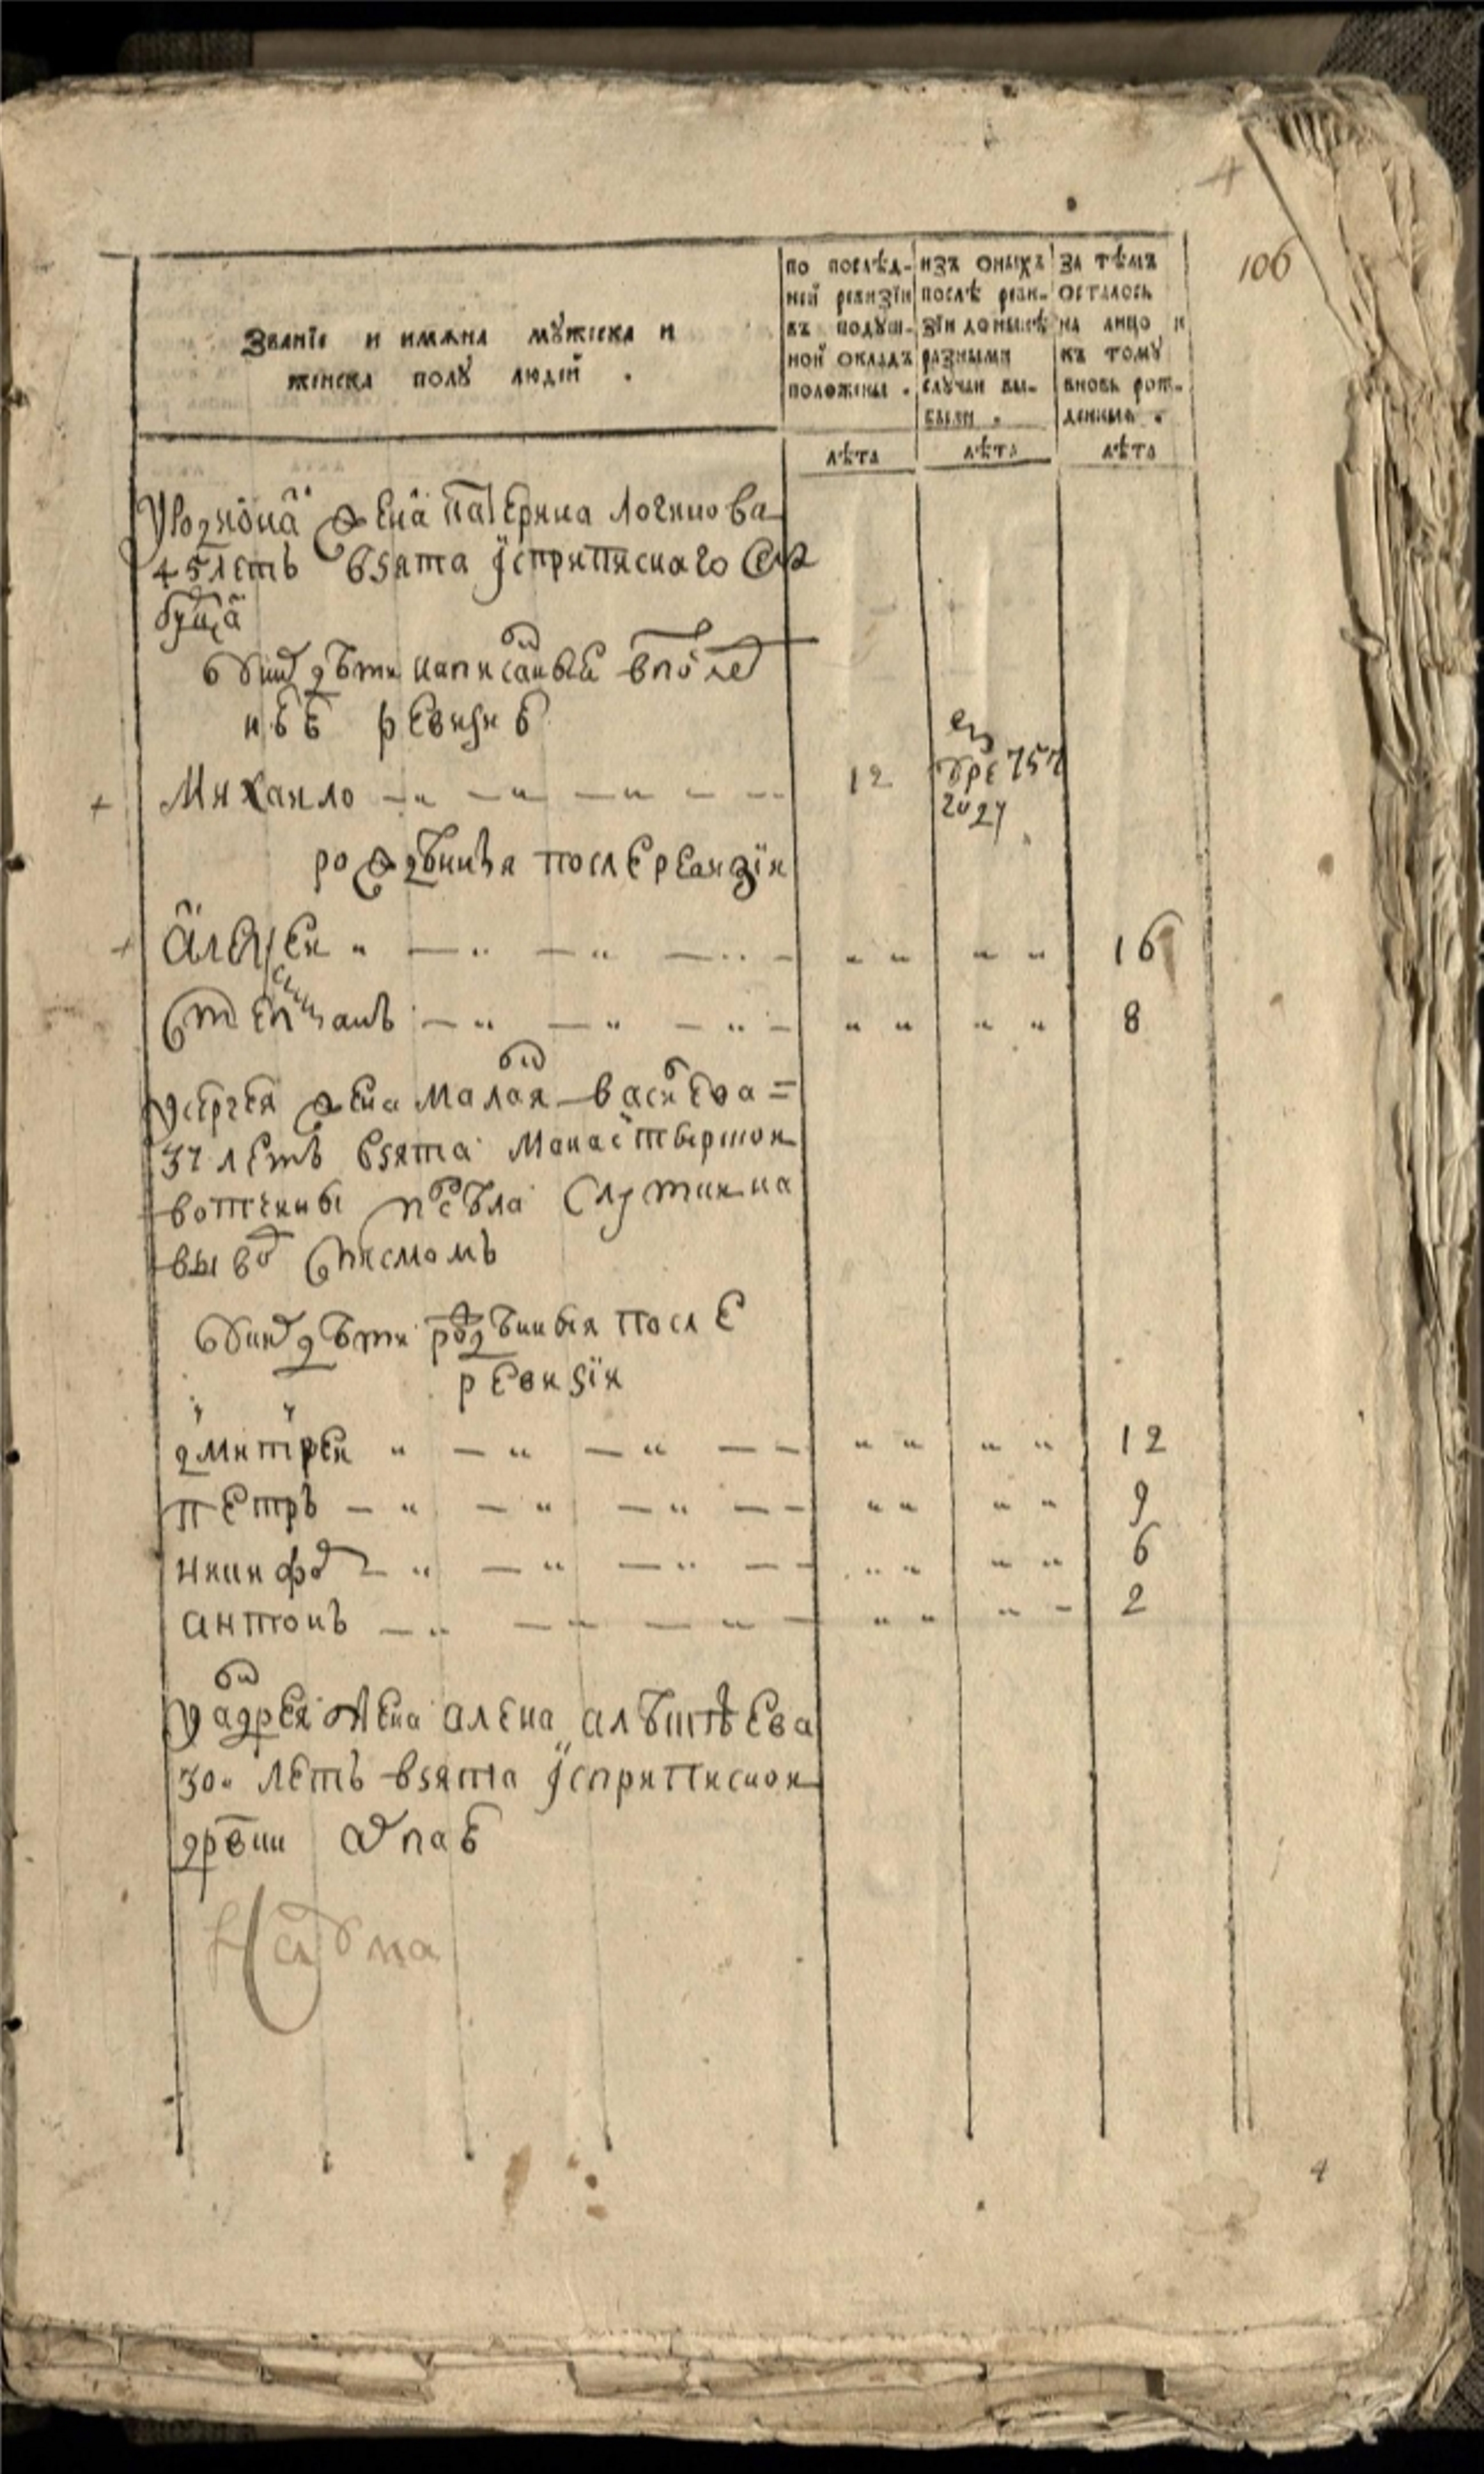 106
Званїе и имяна мꙋжеска и
женска полꙋ людей .
по послѣд-
ней ревизїи
въ подꙋш-
ной окладъ
положены .
изъ оныхъ
послѣ реви-
зїи до нынѣ
разными
случаи вы-
были .
за тѣмъ
осталось
на лицо и
къ тому
вновь рож-
денные .
лѣта
лѣта
лѣта
жена катерина логинова
45 летъ взята усприписнаго
у ниⷯ дѣти написанныя впослед
неи ревизиі
Михаило 12 умре 757
году
рождѣнныя после ревизїи
алеѯеи 16
степанъ 8
у сергея жена маланя васиева =
37 летъ взята манастырскои
вотчины села
вывод списмомъ
у ниⷯ дѣти рождѣнныя после
ревизїи
дмитреи 12
петръ 9
никифоръ 6
антонъ 2
у андрея жена алена алѣѯѣева
30 летъ взята усприписнои
дрвни
4